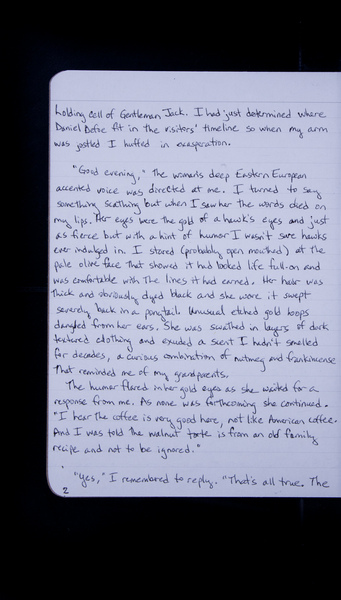 holding cell of Gentleman Jack. I had just determined where
Daniel Defoe fit in the visitors' timeline so when my arm
was jostled I huffed in exasperation.
"Good evening," The woman's deep Eastern European
accented voice was directed at me. I turned to say
something scathing but when I saw her the words died on
my lips. Her eyes were the gold of a hawk's eyes and just
as fierce but with a hint of humor I wasn't sure hawks
ever indulged in. I stared (probably open mouthed) at the
pale olive face that showed it had looked life full-on and
was comfortable with the lines it had earned. Her hair was
thick and obviously dyed black and she wore it swept
severely back in a ponytail. Unusual etched gold loops
dangled from her ears. She was swathed in layers of dark
textured clothing and exuded a scent I hadn't smelled
for decades, a curious combination of nutmeg and frankincense
that reminded me of my grandparents.
The humor flared in her gold eyes as she waited for a
response from me. As none was forthcoming she continued.
"I hear the coffee is very good here, not like American coffee.
And I was told the walnut torte is from an old family
recipe and not to be ignored."
"Yes," I remembered to reply. "That's all true. The
2